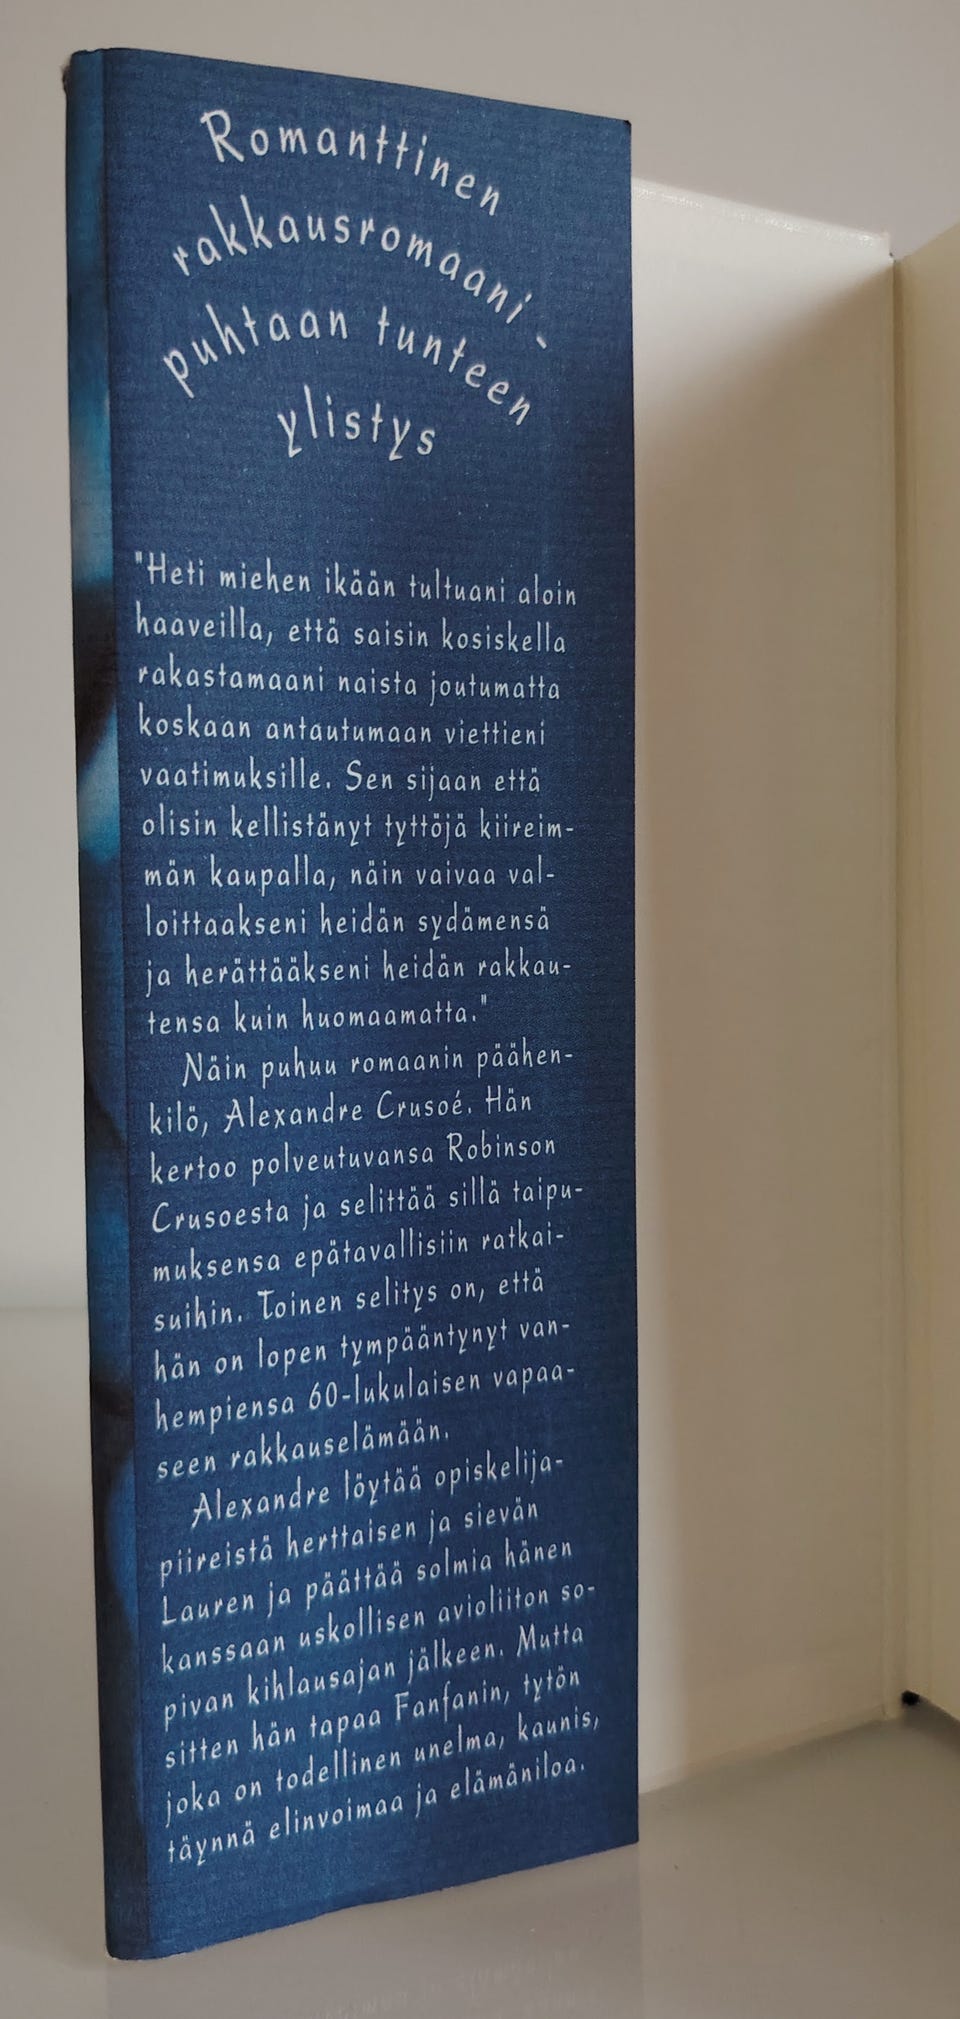 Romanttinen
rakkausromaani -
puhtaan tunteen
ylistys
"Heti miehen ikään tultuani aloin
haaveilla, että saisin kosiskella
rakastamaani naista joutumatta
koskaan antautumaan viettieni
vaatimuksille. Sen sijaan että
olisin kellistänyt tyttöjä kiireim-
män kaupalla, näin vaivaa val-
loittaakseni heidän sydämensä
ja herättääkseni heidän rakkau-
tensa kuin huomaamatta."
Näin puhuu romaanin päähen-
kilö, Alexandre Crusoé. Hän
kertoo polveutuvansa Robinson
Crusoesta ja selittää sillä taipu-
muksensa epätavallisiin ratkai-
suihin. Toinen selitys on, että
hän on lopen tympääntynyt van-
hempiensa 60-lukulaisen vapaa-
seen rakkauselämään.
Alexandre löytää opiskelija-
piireistä herttaisen ja sievän
Lauren ja päättää solmia hänen
kanssaan uskollisen avioliiton so-
pivan kihlausajan jälkeen. Mutta
sitten hän tapaa Fanfanin, tytön
joka on todellinen unelma, kaunis,
täynnä elinvoimaa ja elämäniloa.